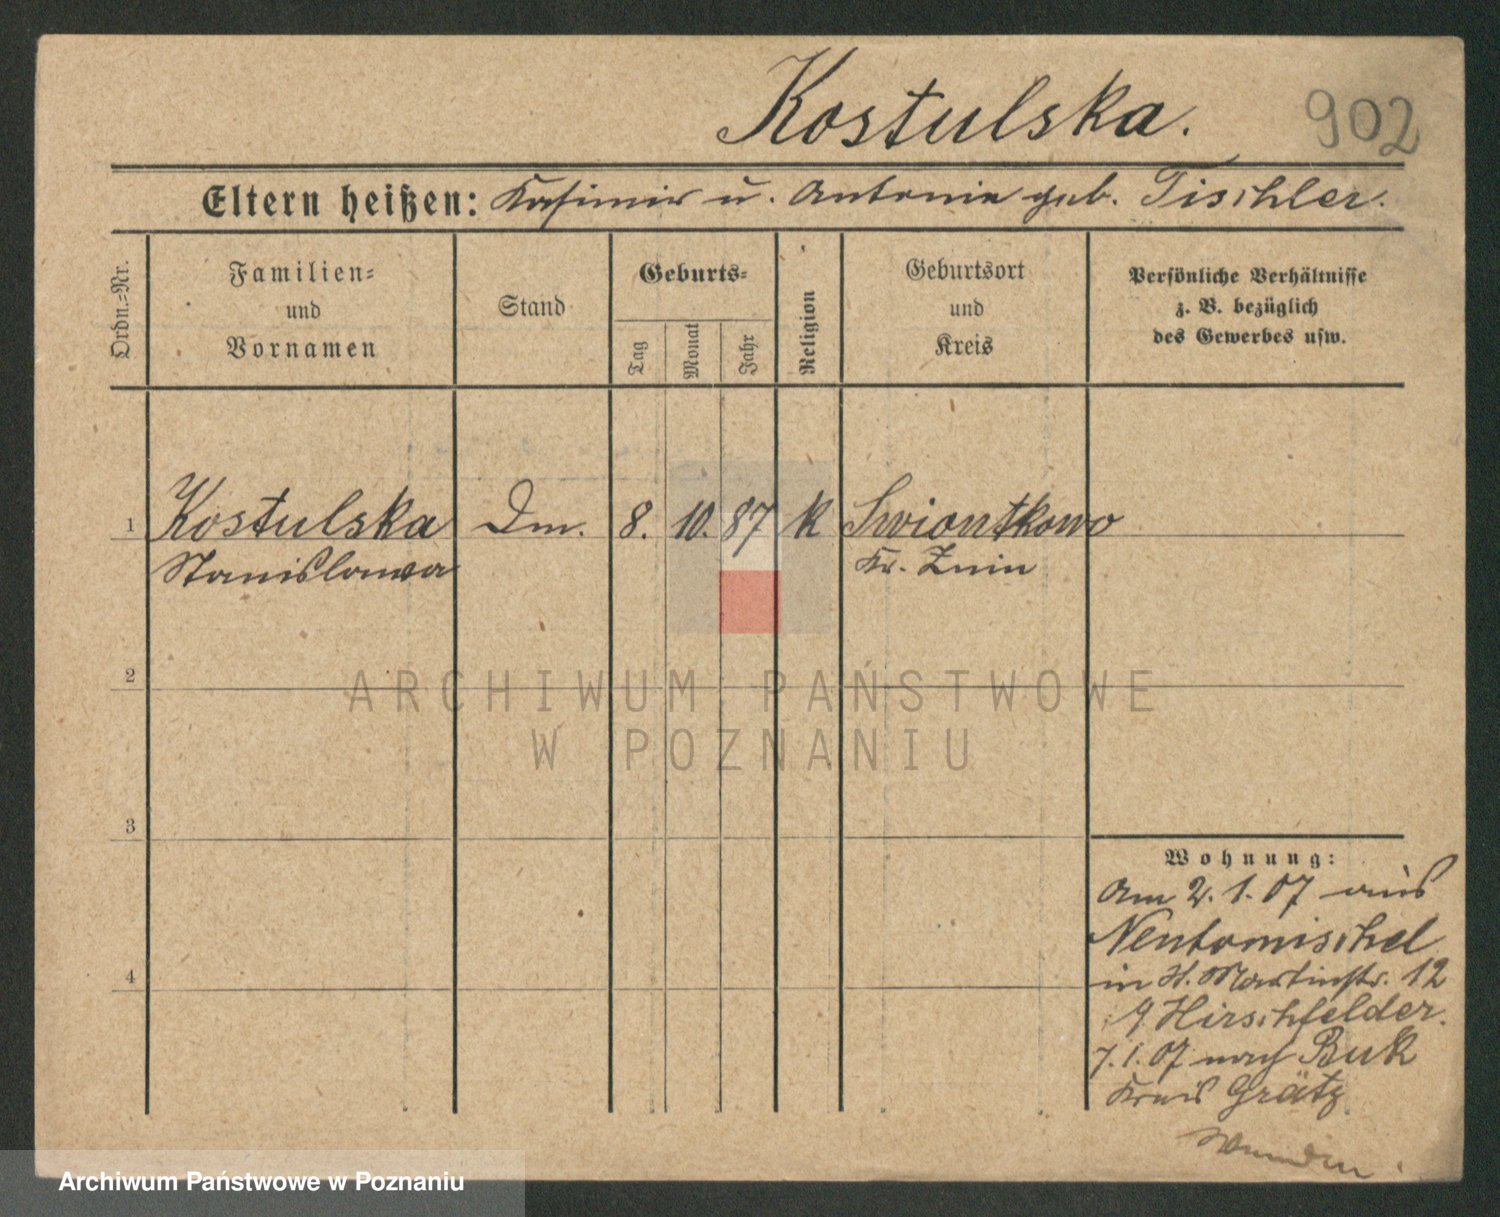 Kostulska.
902
Eltern heißen: Kasimir u. Antonie geb. Tischler.
Ordn.=Nr.
Familien=
und
Vornamen
Stand
Geburts=
Tag
Monat
Jahr
Religion
Geburtsort
und
Kreis
Persönliche Verhältnisse
z. B. bezüglich
des Gewerbes usw.
1 Kostulska Dm. 8. 10. 87 k Swiontkowo
Stanislawa Kr. Znin
2
ARCHIWUM PAŃSTWOWE
W POZNANIU
3
Wohnung:
am 2. 1. 07 aus
Neutomischel
4
in St. Martinstr. 12
Hirschfelder.
7. 1. 07 nach Buk
Kreis Grätz
Archiwum Państwowe w Poznaniu